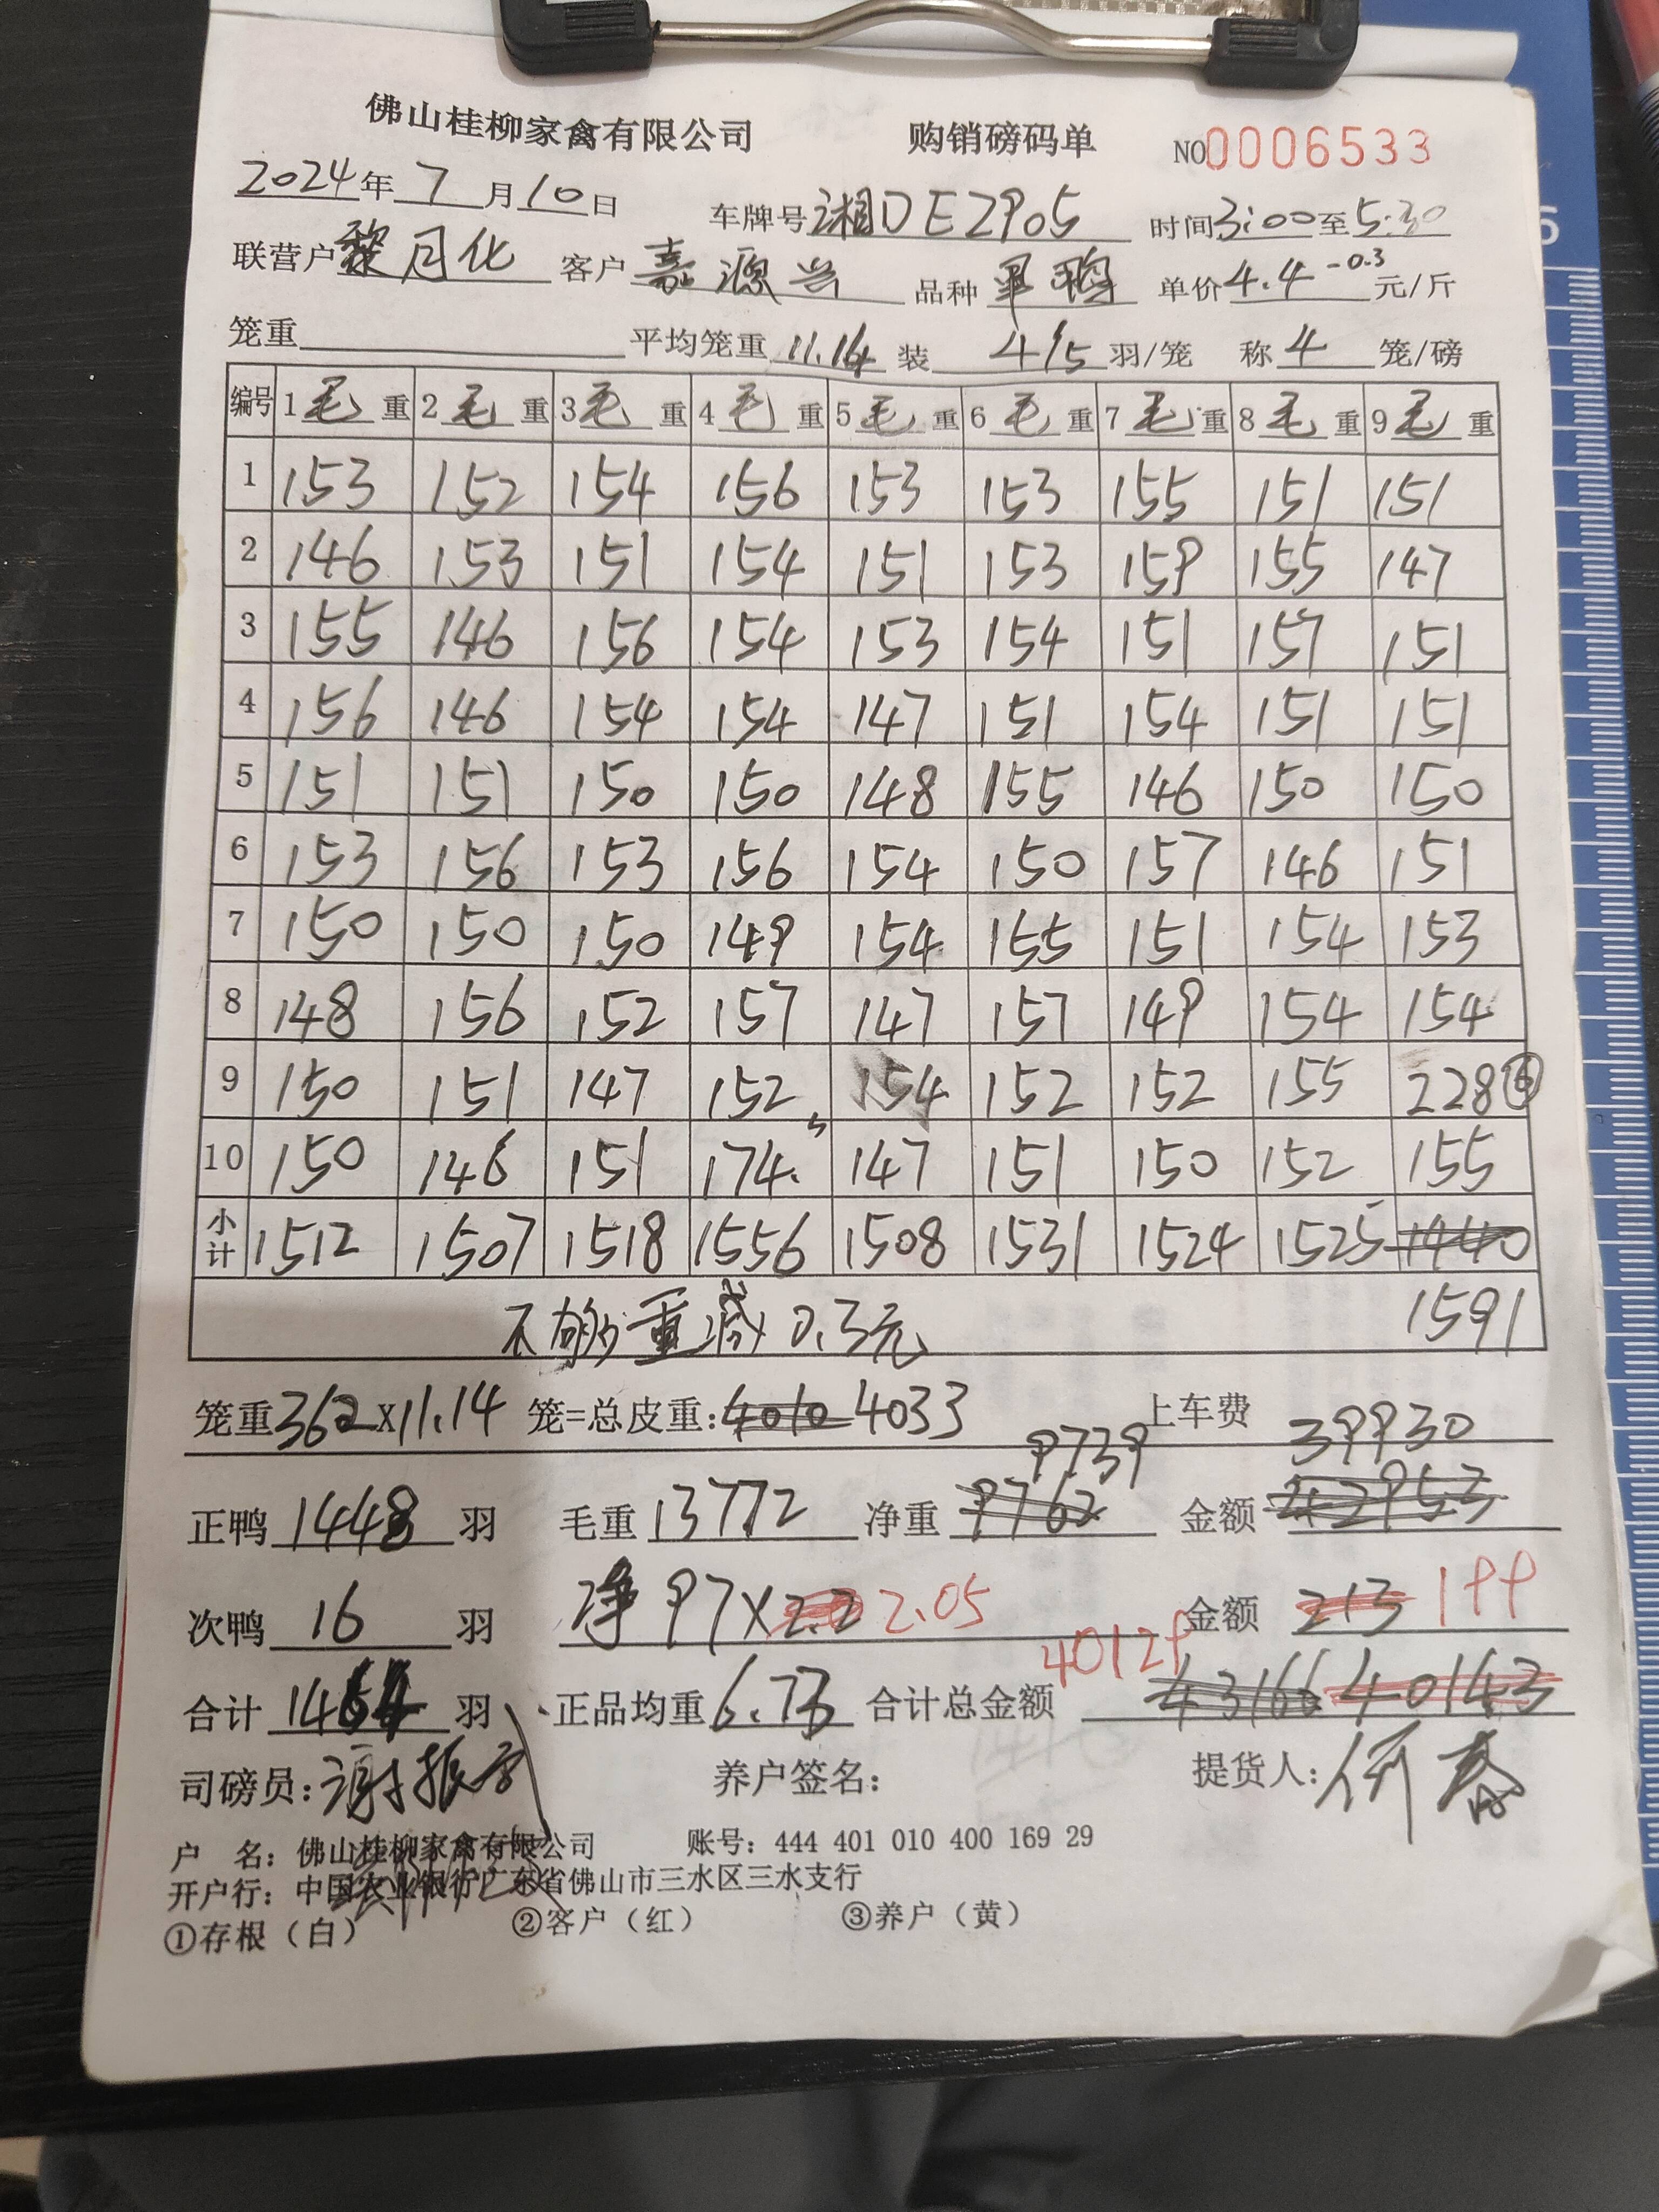 佛山桂柳家禽有限公司 购销磅码单 NO0006533
2024年7月10日 车牌号湘DEZ905 时间3:00至5:30
联营户黎月化 客户嘉源兴 品种旱鸭 单价4.4-0.3元/斤
笼重 平均笼重11.14装4/5羽/笼 称4笼/磅
编号 1毛重 2毛重 3毛重 4毛重 5毛重 6毛重 7毛重 8毛重 9毛重
1 153 152 154 156 153 153 155 151 151
2 146 153 151 154 151 153 159 155 147
3 155 146 156 154 153 154 151 157 151
4 156 146 154 154 147 151 154 151 151
5 151 151 150 150 148 155 146 150 150
6 153 156 153 156 154 150 157 146 151
7 150 150 150 149 154 155 151 154 153
8 148 156 152 157 147 157 149 154 154
9 150 151 147 152 154 152 152 155 228⑥
10 150 146 151 174 5 147 151 150 152 155
小计 1512 1507 1518 1556 1508 1531 1524 1525 1440
不够重减0.3元 1591
笼重362X11.14 笼=总皮重:4010 4033 上车费
9739 39930
正鸭1448羽 毛重13772 净重9762 金额42953
次鸭16羽 净97X2.2 2.05 金额213 199
40129
合计1464羽 正品均重6.73 合计总金额43166 40143
司磅员: 养户签名: 提货人:何春
户 名: 佛山桂柳家禽有限公司 账号: 444 401 010 400 169 29
开户行: 中国农业银行广东省佛山市三水区三水支行
①存根（白） ②客户（红） ③养户（黄）